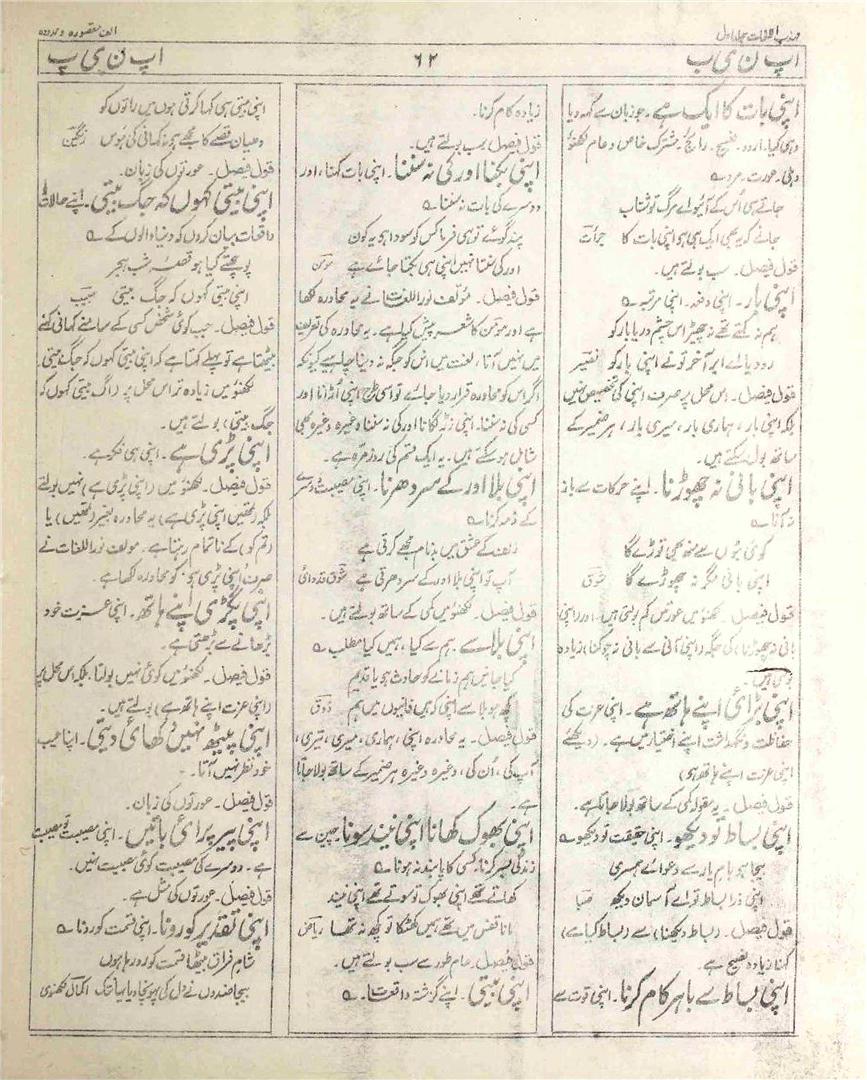 مہذب اللغات جلد اول
الف مقصورہ و ممدودہ
اپ ن ی ب
۶۲
اپ ن ی پ
اپنی بات کا ایک ہے۔ جو زبان سے کہہ دیا
وہی کیا۔ اردو۔ فصیح۔ رائج۔ مشترک خاص و عام لکھنؤ
دہلی۔ عورت۔ مرد ؎
جاتے ہی اُس کے آئیو اے مرگ تو شتاب
جانے کہ یہ بھی ایک ہی ہو اپنی بات کا جرأت
قول فیصل۔ سب بولتے ہیں۔
اپنی بار۔ اپنی دفعہ۔ اپنی مرتبہ ؎
ہم نہ کہتے تھے نہ چھیڑ اس چشم دریا بار کو
رو دیا اے ابر آخر تونے اپنی بار کو
قول فیصل۔ اس محل پر صرف اپنی کی تخصیص نہیں
بلکہ اپنی بار، ہماری بار، میری بار، ہر ضمیر کے
ساتھ بول سکتے ہیں۔
اپنی بانی نہ چھوڑنا۔ اپنے حرکات سے باز
نہ آنا ؎
کوئی بتوں سے منہ بھی توڑے گا
اپنی بانی مگر نہ چھوڑے گا شوق
قول فیصل۔ لکھنؤ میں عورتیں کم بولتی ہیں، اور (اپنی
بانی نہ چھوڑنا) کی جگہ (اپنی آنی سے بانی نہ چوکنا) زیادہ
بولتی ہیں۔
اپنی بڑائی اپنے ہاتھ ہے۔ اپنی عزت کی
حفاظت و نگہداشت اپنے اختیار میں ہے۔ (دیکھئے
اپنی عزت اپنے ہاتھ ہی)
قول فیصل۔ یہ مقولہ کمی کے ساتھ بولا جاتا ہے۔
اپنی بساط تو دیکھو۔ اپنی حقیقت تو دیکھو ؎
بیجا ہو بام یار سے دعوائے ہمسری
اپنی ذرا بساط تو اے آسمان دیکھ صبا
قول فیصل۔ (بساط دیکھنا) سے (بساط کیا ہے)
کہنا زیادہ فصیح ہے۔
اپنی بساط سے باہر کام کرنا۔ اپنی قوت سے
زیادہ کام کرنا۔
قول فیصل۔ سب بولتے ہیں۔
اپنی بکنا اور کی نہ سننا۔ اپنی بات کہنا، اور
دوسرے کی بات نہ سننا ؎
پند گو نے تو ہی فرما کس کو سودا ہو یہ کون
اور کی سنتا نہیں اپنی ہی بکتا جائے ہے مومن
قول فیصل۔ مؤلف نور اللغات نے یہ محاورہ لکھا
ہے اور مومن کا شعر پیش کیا ہے۔ یہ محاورہ کی تعریف
میں نہیں آتا، لغت میں اس کو جگہ نہ دینا چاہیے کیونکہ
اگر اس کو محاورہ قرار دیا جائے تو اسی طرح اپنی اڑانا اور
کسی کی نہ سننا۔ اپنی زٹ لگانا اور کی نہ سننا وغیرہ وغیرہ بھی
شامل ہو سکتے ہیں۔ یہ ایک قسم کی روزمرہ ہے۔
اپنی بلا اور کے سر دھرنا۔ اپنی مصیبت دوسرے
کے ذمہ کرنا ؎
زلف کے عشق میں بدنام مجھے کرتی ہے
آپ تو اپنی بلا اور کے سر دھرتی ہے شوق قدوائی
قول فیصل۔ لکھنؤ میں کمی کے ساتھ بولتے ہیں۔
اپنی بلا سے۔ ہم سے کیا، ہمیں کیا مطلب ؎
کیا جانیں ہم زمانے کو حادث ہو یا قدیم
کچھ ہو بلا سے اپنی کہ ہیں فانیوں میں ہم ذوق
قول فیصل۔ یہ محاورہ اپنی، ہماری، میری، تیری،
آپ کی، اُن کی، وغیرہ وغیرہ ہر ضمیر کے ساتھ بولا جاتا
ہے۔
اپنی بھوک کھانا اپنی نیند سونا۔ چین سے
زندگی بسر کرنا، کسی کا پابند نہ ہونا ؎
کھاتے تھے اپنی بھوک تو سوتے تھے اپنی نیند
مانا قفس میں تھے ہمیں کھٹکا تو کچھ نہ تھا ریاض
قول فیصل۔ عام طور سے سب بولتے ہیں۔
اپنی بیتی۔ اپنے گزشتہ واقعات۔ ؎
اپنی بیتی ہی کہا کرتی ہوں میں راتوں کو
دھیان قصے کا مجھے ہے نہ کہانی کی ہوس رنگین
قول فیصل۔ عورتوں کی زبان۔
اپنی بیتی کہوں کہ جگ بیتی۔ اپنے حالات
واقعات بیان کروں کہ دنیا والوں کے ؎
پوچھتے کیا ہو قصۂ شب ہجر
اپنی بیتی کہوں کہ جگ بیتی
قول فیصل۔ جب کوئی شخص کسی کے سامنے کہانی کہنے
بیٹھتا ہے تو پہلے کہتا ہے کہ اپنی بیتی کہوں کہ جگ بیتی۔
لکھنؤ میں زیادہ تر اس محل پر (آپ بیتی کہوں کہ
جگ بیتی) بولتے ہیں۔
اپنی پڑی ہے۔ اپنی ہی فکر ہے۔
قول فیصل۔ لکھنؤ میں (اپنی پڑی ہے) نہیں بولتے
بلکہ (تمھیں اپنی پڑی ہے) یہ محاورہ بغیر (تمھیں) یا
(تم کو) کے ناتمام رہتا ہے۔ مولف نور اللغات نے
صرف 'اپنی پڑی ہی' کو محاورہ لکھا ہے۔
اپنی پگڑی اپنے ہاتھ۔ اپنی عزت خود
بڑھانے سے بڑھتی ہے۔
قول فیصل۔ لکھنؤ میں کوئی نہیں بولتا۔ بلکہ اس محل پر
(اپنی عزت اپنے ہاتھ ہے) بولتے ہیں۔
اپنی پیٹھ نہیں دکھائی دیتی۔ اپنا عیب
خود نظر نہیں آتا۔
قول فیصل۔ عورتوں کی زبان۔
اپنی پیر پرائی باتیں۔ اپنی مصیبت تو مصیبت
ہے۔ دوسرے کی مصیبت کوئی مصیبت نہیں۔
قول فیصل۔ عورتوں کی مثل ہے۔
اپنی تقدیر کو رونا۔ اپنی قسمت کو رونا ؎
شام فراق بیٹھا قسمت کو رو رہا ہوں
بیجا ضدوں نے دل کی پہونچا دیا یہاں تک